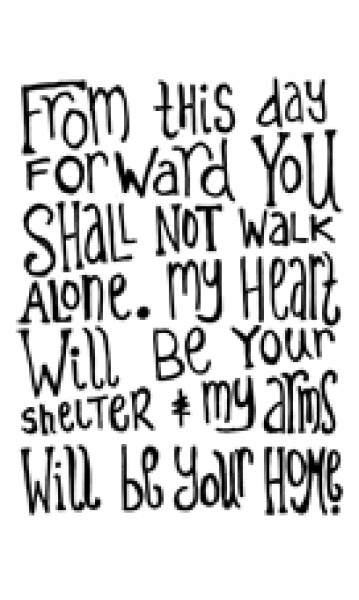 From this day
forward you
shall not walk
alone. my heart
will be your
shelter & my arms
will be your home.